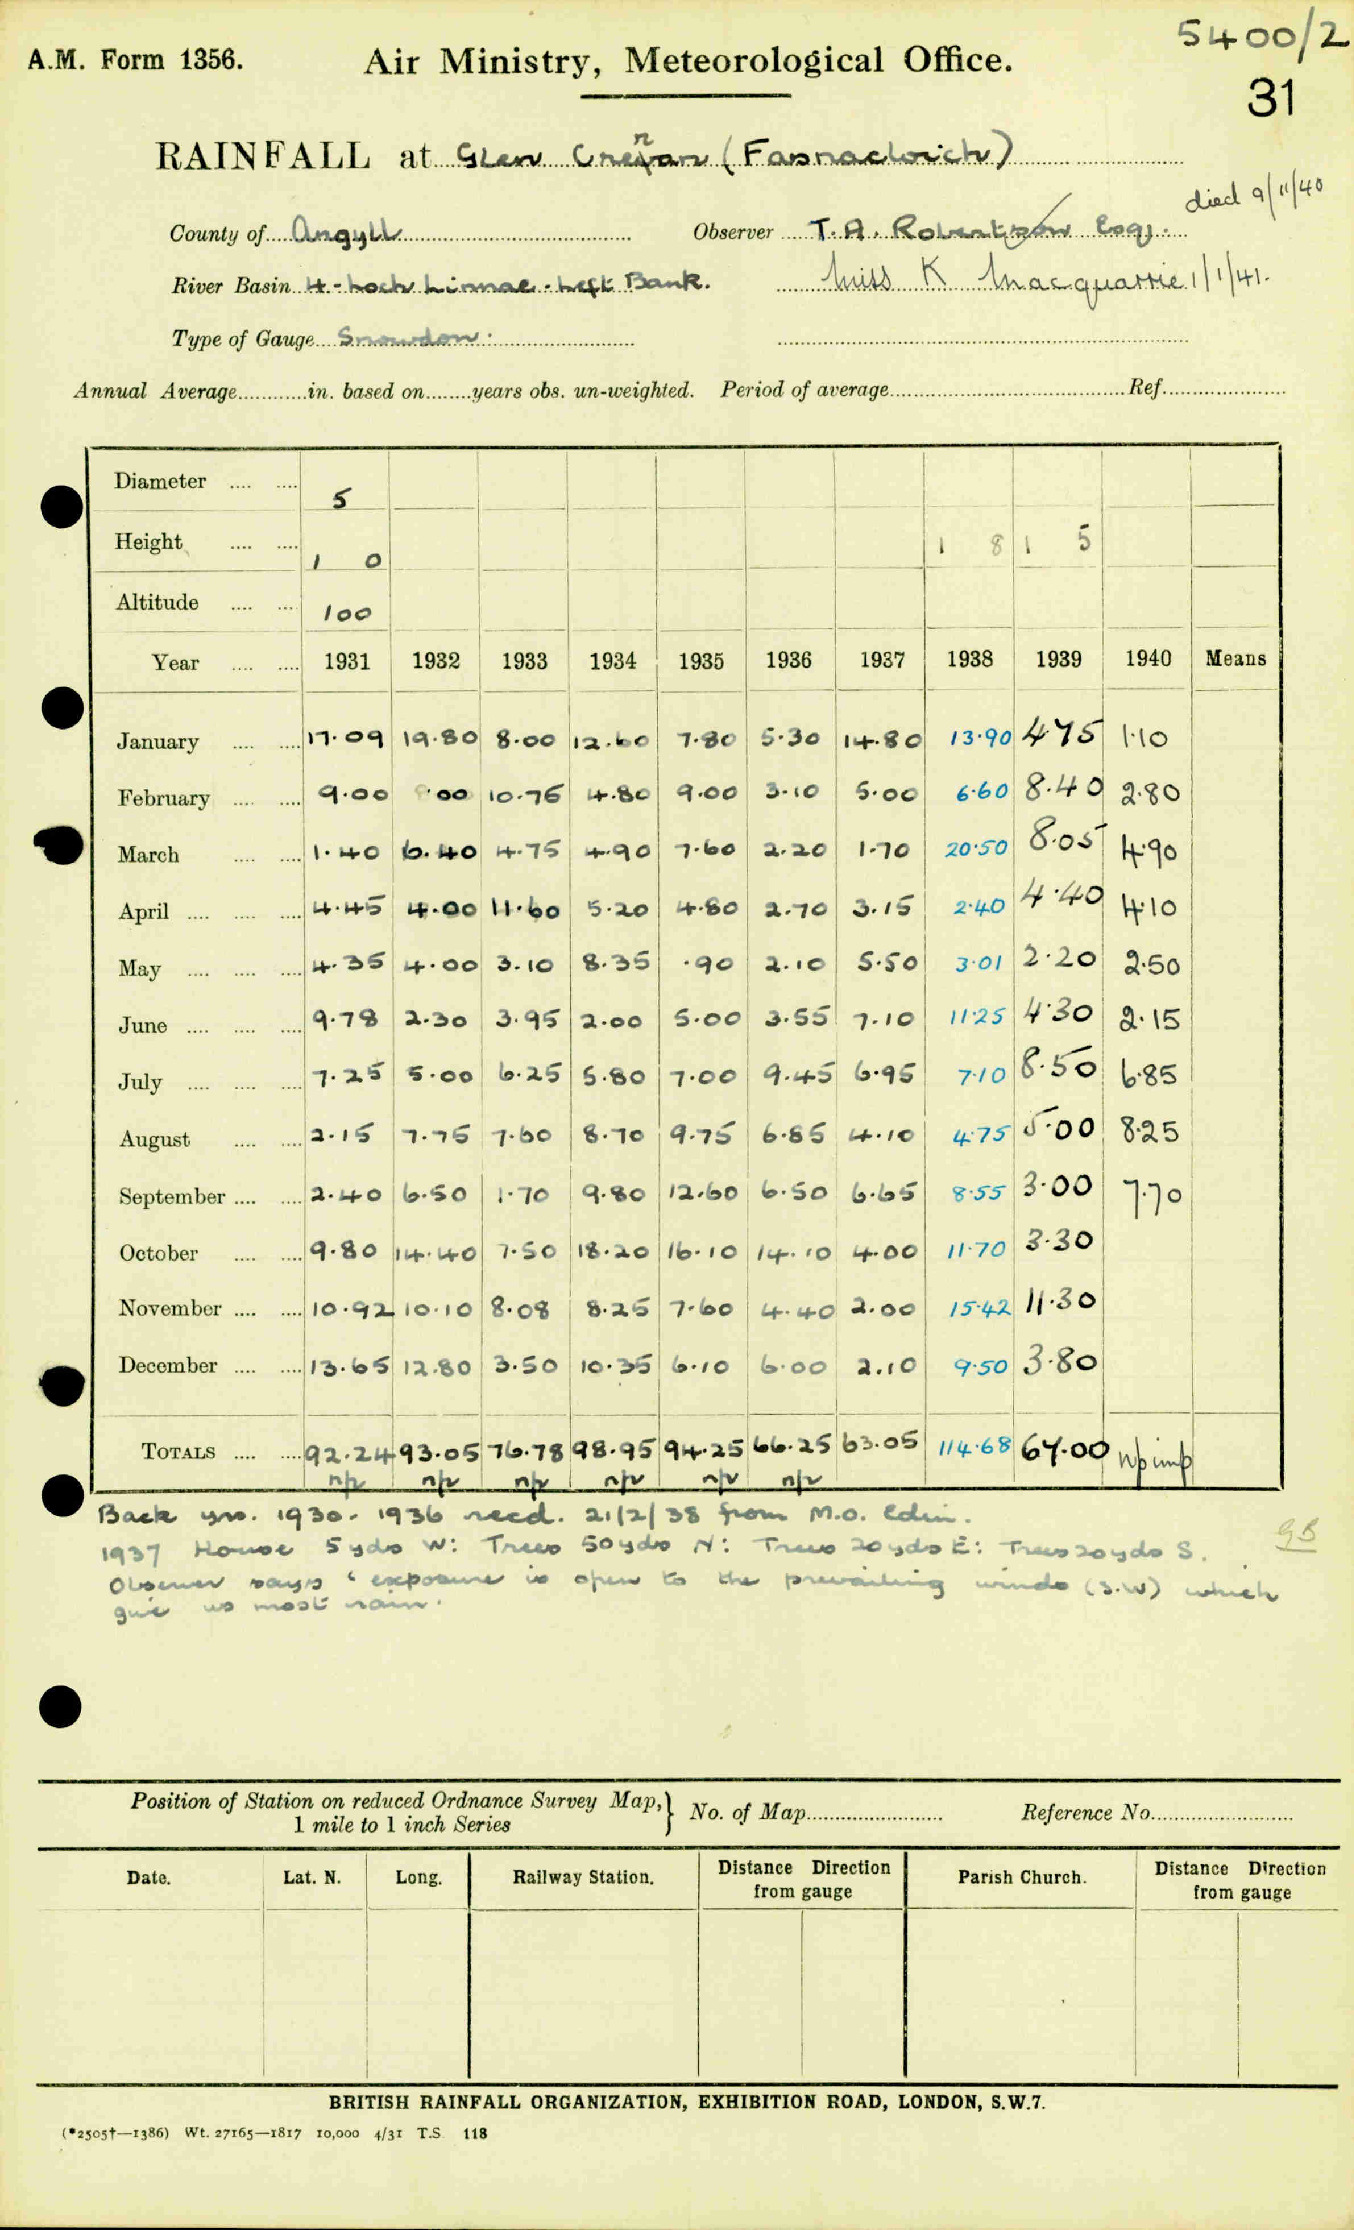 5400/2
A.M. Form 1356. Air Ministry, Meteorological Office.
31
RAINFALL at Glen Crenan (Fasnacloich)
died 9/11/40
County of Argyll Observer T. A. Robertson Esq.
River Basin 4 - Loch Linnae - Left Bank. Miss K Macquarrie 1/1/41.
Type of Gauge Snowdon.
Annual Average in. based on years obs. un-weighted. Period of average Ref.
Diameter 5
Height 1 0 1 8 1 5
Altitude 100
Year 1931 1932 1933 1934 1935 1936 1937 1938 1939 1940 Means
January 17.09 19.80 8.00 12.60 7.80 5.30 14.80 13.90 4.75 1.10
February 9.00 .00 10.75 4.80 9.00 3.10 5.00 6.60 8.40 2.80
March 1.40 6.40 4.75 4.90 7.60 2.20 1.70 20.50 8.05 4.90
April 4.45 4.00 11.60 5.20 4.80 2.70 3.15 2.40 4.40 4.10
May 4.35 4.00 3.10 8.35 .90 2.10 5.50 3.01 2.20 2.50
June 9.78 2.30 3.95 2.00 5.00 3.55 7.10 11.25 4.30 2.15
July 7.25 5.00 6.25 5.80 7.00 9.45 6.95 7.10 8.50 6.85
August 2.15 7.75 7.60 8.70 9.75 6.85 4.10 4.75 5.00 8.25
September 2.40 6.50 1.70 9.80 12.60 6.50 6.65 8.55 3.00 7.70
October 9.80 14.40 7.50 18.20 16.10 14.10 4.00 11.70 3.30
November 10.92 10.10 8.08 8.25 7.60 4.40 2.00 15.42 11.30
December 13.65 12.80 3.50 10.35 6.10 6.00 2.10 9.50 3.80
TOTALS 92.24 93.05 76.78 98.95 94.25 66.25 63.05 114.68 67.00 np imp
np np np np np np
Back yrs. 1930-1936 recd. 21/2/38 from M.O. Edin.
1937 House 5yds W: Trees 50yds N: Trees 20yds E: Trees 20yds S.
Observer says "exposure is open to the prevailing winds (S.W) which
give us most rain.
Position of Station on reduced Ordnance Survey Map, 1 mile to 1 inch Series } No. of Map Reference No.
Date. Lat. N. Long. Railway Station. Distance Direction from gauge Parish Church. Distance Direction from gauge
BRITISH RAINFALL ORGANIZATION, EXHIBITION ROAD, LONDON, S.W.7.
(*2505†—1386) Wt. 27165—1817 10,000 4/31 T.S. 118